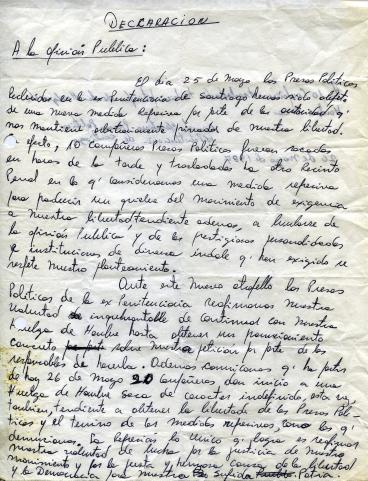 DECLARACION
A la opinión Publica:
El día 25 de Mayo los Presos Políticos
Recluidos en la ex Penitenciaria de santiago hemos sido objeto
de una nueva medida represiva por pte de las autoridad q'
nos mantiene arbitrariamente privados de nuestra libertad.
efecto, 10 compañeros Presos Politicos fueron sacados
en horas de la tarde y trasladados ha otro Recinto
Penal en lo q' consideramos una medida represiva
para producir un quiebre del movimiento de exigencia
a nuestra libertad tendiente ademas, a burlarse de
la opinión Publica y de las prestigiosas personalidades
e instituciones de diversa indole q' han exigido se
respete nuestro planteamiento.
Ante este nuevo atropello los Presos
Politicos de la ex Penitenciaria reafirmamos nuestra
voluntad inquebrantable de continuar con nuestra
Huelga de Hambre hasta obtener un pronunciamiento
concreto sobre nuestra peticion por pte de los
responsables de hacerlo. Ademas comunicamos q' ha partir
de hoy 26 de Mayo 20 compañeros dan inicio a una
Huelga de Hambre seca de caracter indefinido, esta va,
tambien, tendiente a obtener la libertad de los Presos Poli-
ticos y el termino de las medidas represivas, como las q'
denunciamos. La represión lo unico q' logra es reafirmar
nuestra voluntad de lucha por la justicia de nuestro
movimiento y por la justa y hermosa causa de la libertad
y la Democracia para nuestra sufrida Patria.